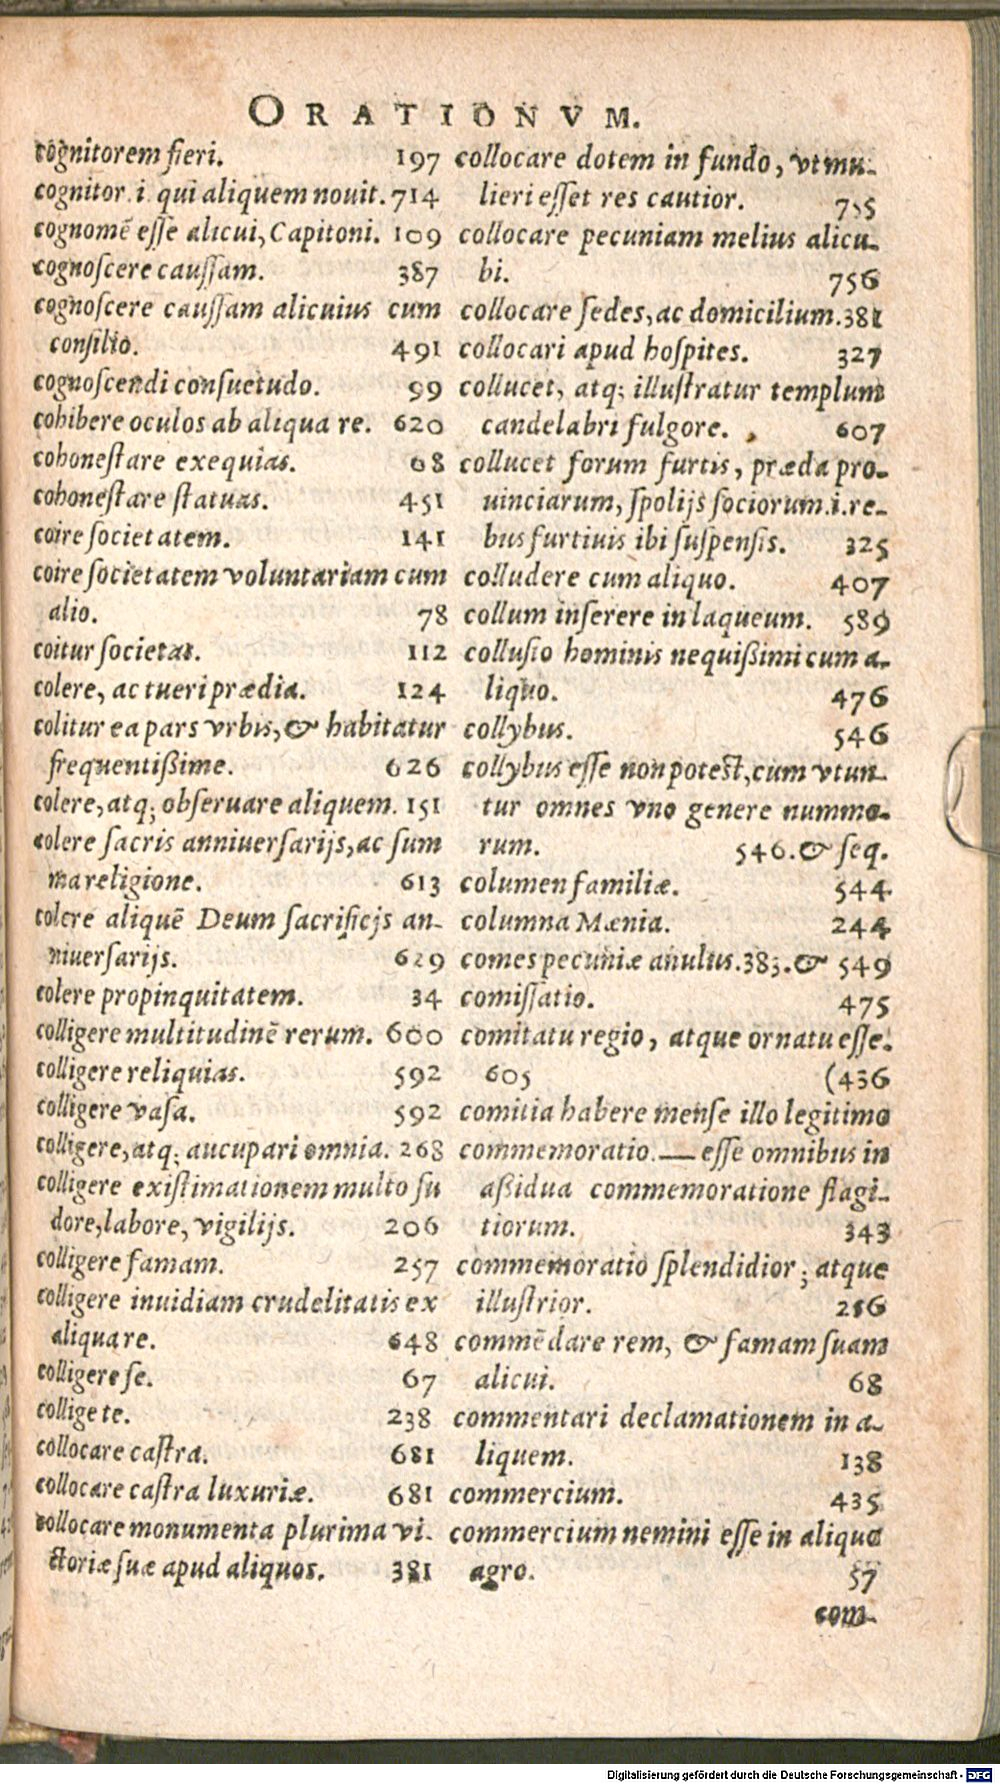 ORATIONVM.
cognitorem fieri. 197
cognitor .i. qui aliquem nouit. 714
cognomē esse alicui, Capitoni. 109
cognoscere caussam. 387
cognoscere caussam alicuius cum
consilio. 491
cognoscendi consuetudo. 99
cohibere oculos ab aliqua re. 620
cohonestare exequias. 68
cohonestare statuas. 451
coire societatem. 141
coire societatem voluntariam cum
alio. 78
coitur societas. 112
colere, ac tueri prædia. 124
colitur ea pars vrbis, & habitatur
frequentißime. 626
colere, atq; obseruare aliquem. 151
colere sacris anniuersarijs, ac sum
ma religione. 613
colere aliquē Deum sacrificijs an-
niuersarijs. 629
colere propinquitatem. 34
colligere multitudinē rerum. 600
colligere reliquias. 592
colligere vasa. 592
colligere, atq; aucupari omnia. 268
colligere existimationem multo su
dore, labore, vigilijs. 206
colligere famam. 257
colligere inuidiam crudelitatis ex
aliqua re. 648
colligere se. 67
collige te. 238
collocare castra. 681
collocare castra luxuriæ. 681
collocare monumenta plurima vi-
ctoriæ suæ apud aliquos. 381
collocare dotem in fundo, vt mu-
lieri esset res cautior. 755
collocare pecuniam melius alicu-
bi. 756
collocare sedes, ac domicilium. 381
collocari apud hospites. 327
collucet, atq; illustratur templum
candelabri fulgore. 607
collucet forum furtis, præda pro-
uinciarum, spolijs sociorum .i. re-
bus furtiuis ibi suspensis. 325
colludere cum aliquo. 407
collum inserere in laqueum. 589
collusio hominis nequißimi cum a-
liquo. 476
collybus. 546
collybus esse non potest, cum vtun-
tur omnes vno genere nummo-
rum. 546. & seq.
columen familiæ. 544
columna Mænia. 244
comes pecuniæ anulus. 383. & 549
comissatio. 475
comitatu regio, atque ornatu esse.
605 (436
comitia habere mense illo legitimo
commemoratio. — esse omnibus in
aßidua commemoratione flagi-
tiorum. 343
commemoratio splendidior; atque
illustrior. 216
commēdare rem, & famam suam
alicui. 68
commentari declamationem in a-
liquem. 138
commercium. 435
commercium nemini esse in aliquo
agro. 57
com-
Digitalisierung gefördert durch die Deutsche Forschungsgemeinschaft - DFG